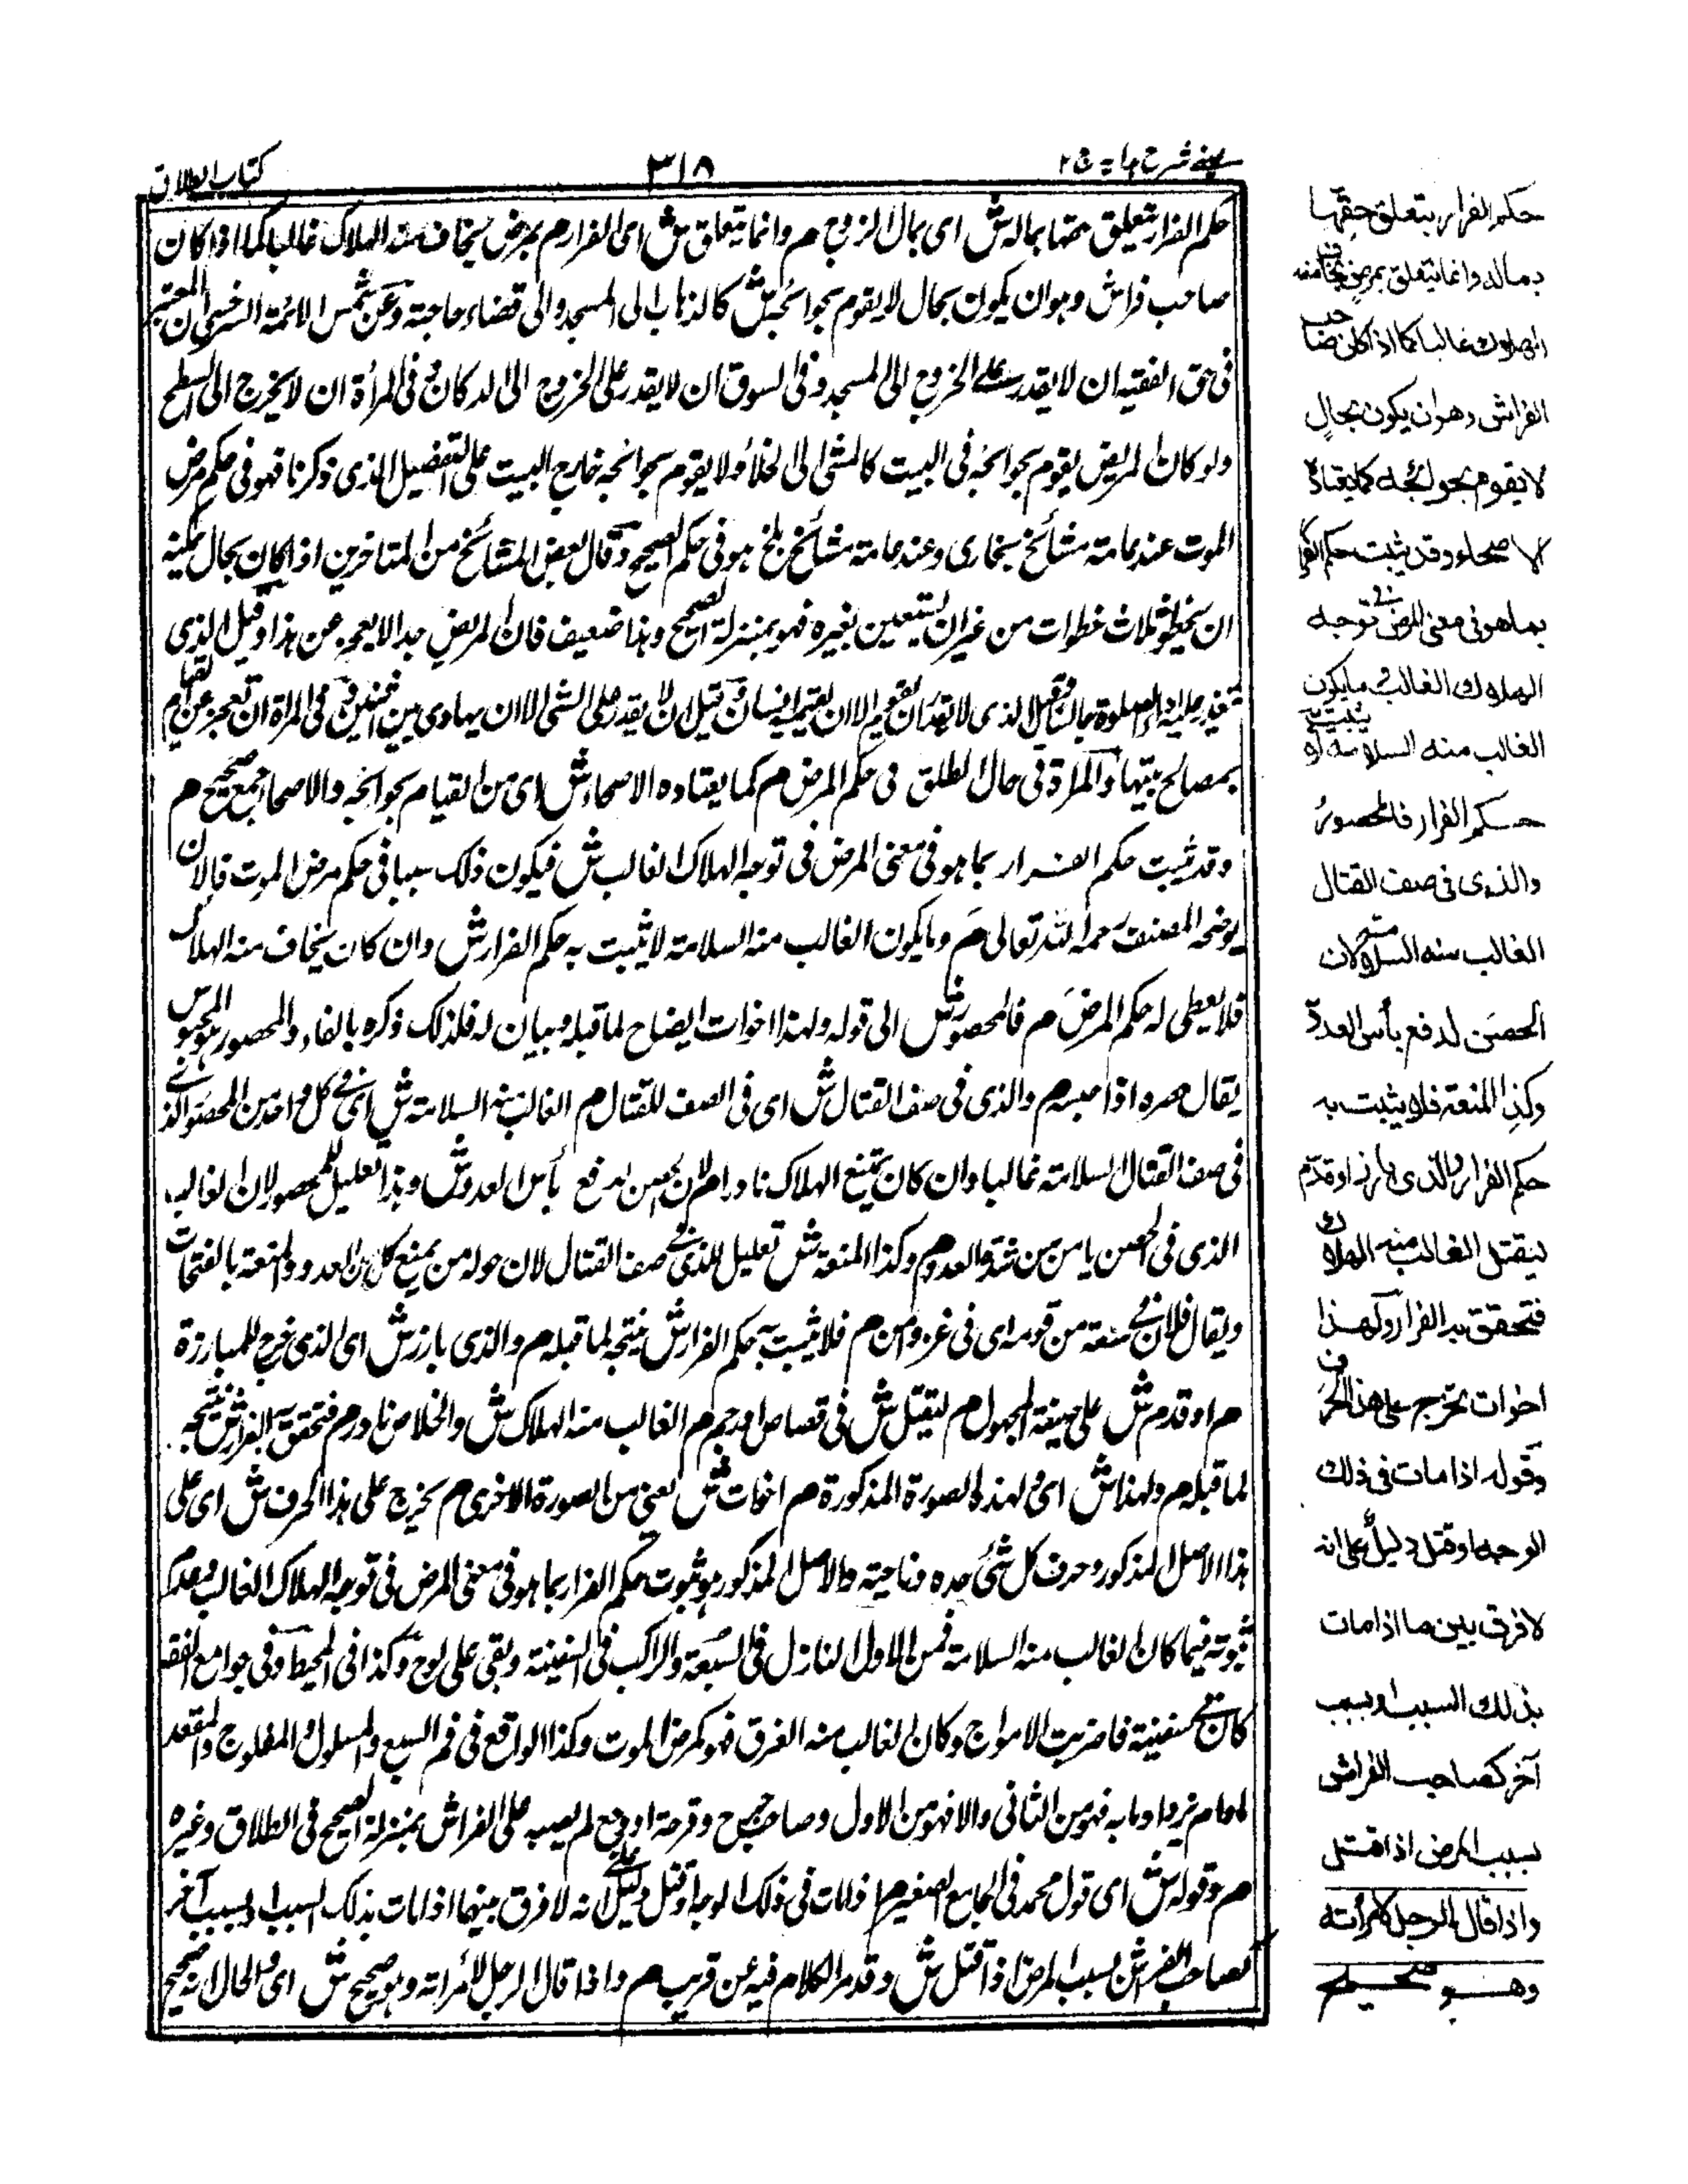 كتاب الطلاق
٣١٨
عينى شرح هدايه ج ٢
حكم الفرار بتعلق حقها بماله ش اى بمال الزوج م وانما يتعلق ش اى الفرار م بمرض يخاف منه الهلاك غالبا كما اذا كان
صاحب فراش وهو ان يكون بحال لا يقوم بحوائجه ش كالذهاب الى المسجد والى قضاء حاجته وعن شمس الائمة السرخسى ان المعتبر
فى حق الفقيه ان لا يقدر على الخروج الى المسجد وفى السوق ان لا يقدر على الخروج الى الدكان وفى المرأة ان لا يخرج الى السطح
ولو كان المريض يقوم بحوائجه فى البيت كالمشى الى الخلاء ولا يقوم بحوائجه خارج البيت على التفصيل الذى ذكرنا فهو فى حكم مرض
الموت عند عامة مشائخ بخارى وعند عامة مشائخ بلخ هو فى حكم الصحيح وقال بعض المشائخ من المتاخرين اذا كان بحال يمكنه
ان يخطو ثلاث خطوات من غير ان يستعين بغيره فهو بمنزلة الصحيح وهذا ضعيف فان المريض جدا لا يعجز عن هذا وقيل الذى
يتعذر عليه اداء الصلوة جالسا وقيل الذى لا يقدر ان يقوم الا ان يقيمه انسان وقيل ان لا يقدر على المشى الا ان يهادى بين اثنين وفى المرأة ان تعجز عن القيام
بمصالح بيتها والمرأة فى حال الطلق فى حكم المرض م كما يعتاده الاصحاء ش اى من القيام بحوائجه والاصحاء جمع صحيح م
وقد يثبت حكم الفرار بما هو فى معنى المرض فى توجه الهلاك الغالب ش فيكون ذلك سببا فى حكم مرض الموت فالان
يوضحه المصنف رحمه الله تعالى م وما يكون الغالب منه السلامة لا يثبت به حكم الفرار ش وان كان يخاف منه الهلاك
فلا يعطى له حكم المرض م فالمحصور ش الى قوله ولهذا اخوات ايضاح لما قبله وبيان له فلذلك ذكره بالفاء والمحصور هو المحبوس
يقال حصره اذا حبسه م والذى فى صف القتال ش اى فى الصف للقتال م الغالب منه السلامة ش اى فى كل واحد من المحصور والذى
فى صف القتال السلامة غالبا وان كان يتمنع الهلاك نادرا م لان الحصن لدفع بأس العدو ش وهذا تعليل للمحصور لان الغالب
الذى فى الحصن يامن من شدة العدو م وكذا المنعة ش تعليل للذى فى صف القتال لان حوله من يمنع كل من العدو والمنعة بالفتحات
ويقال فلان فى منعة من قومه اى فى عز وامن م فلا يثبت به حكم الفرار ش نتيجة لما قبله م والذى بارز ش اى الذى خرج للمبارزة
م او قدم ش على صيغة المجهول م ليقتل ش فى قصاص او رجم م الغالب منه الهلاك ش والخلاص نادر م فتحقق به الفرار ش نتيجة
لما قبله م ولهذا ش اى ولهذه الصورة المذكورة م اخوات ش يعنى من الصورة الاخرى م يخرج على هذا الحرف ش اى على
هذا الاصل المذكور وحرف كل شئ حده وناحيته والاصل المذكور هو ثبوت حكم الفرار بما هو فى معنى المرض فى توجه الهلاك الغالب وعدم
ثبوته فيما كان الغالب منه السلامة فمن الاول النازل فى المسبعة والراكب فى السفينة وبقى على لوح وكذا فى المحيط وفى جوامع الفقه
كان فى سفينة فاضربت الامواج وكان الغالب منه الغرق فهو كمرض الموت وكذا الواقع فى فم السبع والمسلول والمفلوج والمقعد
مادام يزداد ما به فهو من الثانى والا فهو من الاول وصاحب جرح وقرحة او وجع لم يصبه على الفراش بمنزلة الصحيح فى الطلاق وغيره
م وقوله ش اى قول محمد فى الجامع الصغير م اذا مات فى ذلك الوجه او قتل دليل على انه لا فرق بينهما اذا مات بذلك السبب او بسبب آخر
كصاحب الفراش بسبب المرض اذا قتل ش وقد مر الكلام فيه عن قريب م واذا قال الرجل لامرأته وهو صحيح ش اى والحال انه صحيح
حكم الفرار بتعلق حقها
بماله وانما يتعلق بمرض يخاف منه
الهلاك غالبا كما اذا كان صاحب
الفراش وهو ان يكون بحالٍ
لا يقوم بحوائجه كما يعتاده
الاصحاء وقد يثبت حكم الفرار
بما هو فى معنى المرض فى توجه
الهلاك الغالب وما يكون
الغالب منه السلامة لا يثبت به
حكم الفرار فالمحصور
والذى فى صف القتال
الغالب منه السلامة لان
الحصن لدفع بأس العدو
وكذا المنعة فلا يثبت به
حكم الفرار والذى بارز او قدّم
ليقتل الغالب منه الهلاك
فتحقق به الفرار ولهذا
اخوات تخرج على هذا الحرف
وقوله اذا مات فى ذلك
الوجه او قتل دليلٌ على انه
لا فرق بين ما اذا مات
بذلك السبب او بسبب
آخر كصاحب الفراش
بسبب المرض اذا قتل
واذا قال الرجل لامرأته
وهو صحيح